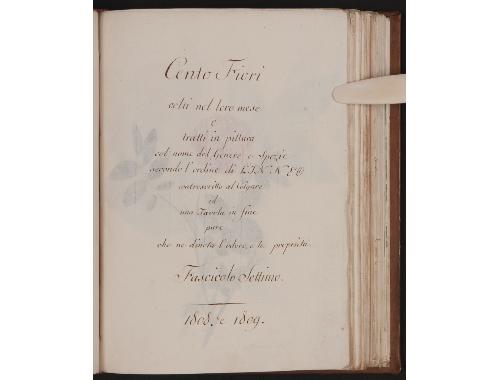 Cento Fiori
colti nel loro mese
e
tratti in pittura
col nome del Genere e Spezie
secondo l'ordine di LINNEO
contrescritto al Volgare
ed
una Tavola in fine
pure
che ne dinota l'odore, e le proprietà.
Fascicolo Settimo.
1808. e 1809.